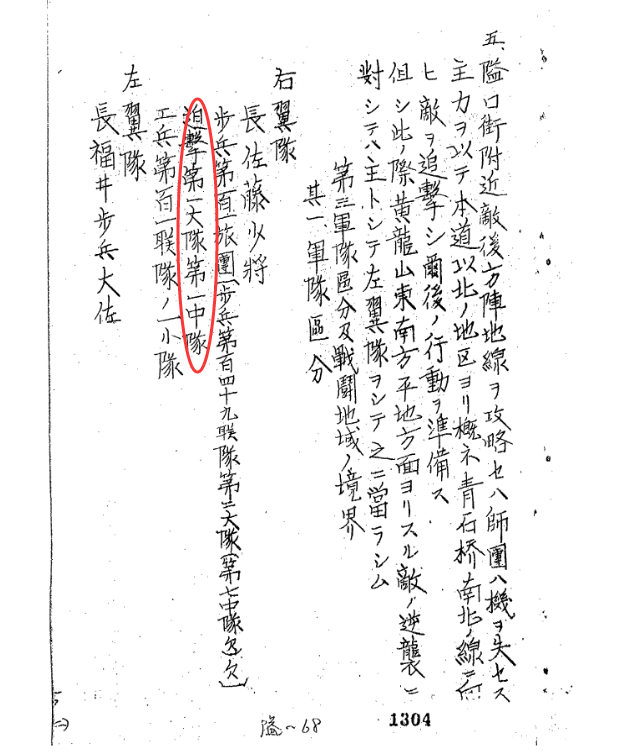 五、隘口街附近敵後方陣地線ヲ攻略セハ師團ハ機ヲ失セス
主力ヲ以テ本道以北ノ地区ヨリ概ネ青石桥南北ノ線ニ向
ヒ敵ヲ追撃シ爾後ノ行動ヲ準備ス
但シ此ノ際黄龍山東南方平地方面ヨリスル敵ノ逆襲ニ
對シテハ主トシテ左翼隊ヲシテ之ニ當ラシム
第三軍隊区分及戰鬪地域ノ境界
其一軍隊区分
右翼隊
長佐藤少将
步兵第百一旅團(步兵第百四十九联隊第二大隊(第七中隊欠)欠)
迫擊第一大隊第一中隊
工兵第百一联隊ノ一小隊
左翼隊
長福井步兵大佐
隘～68
1304